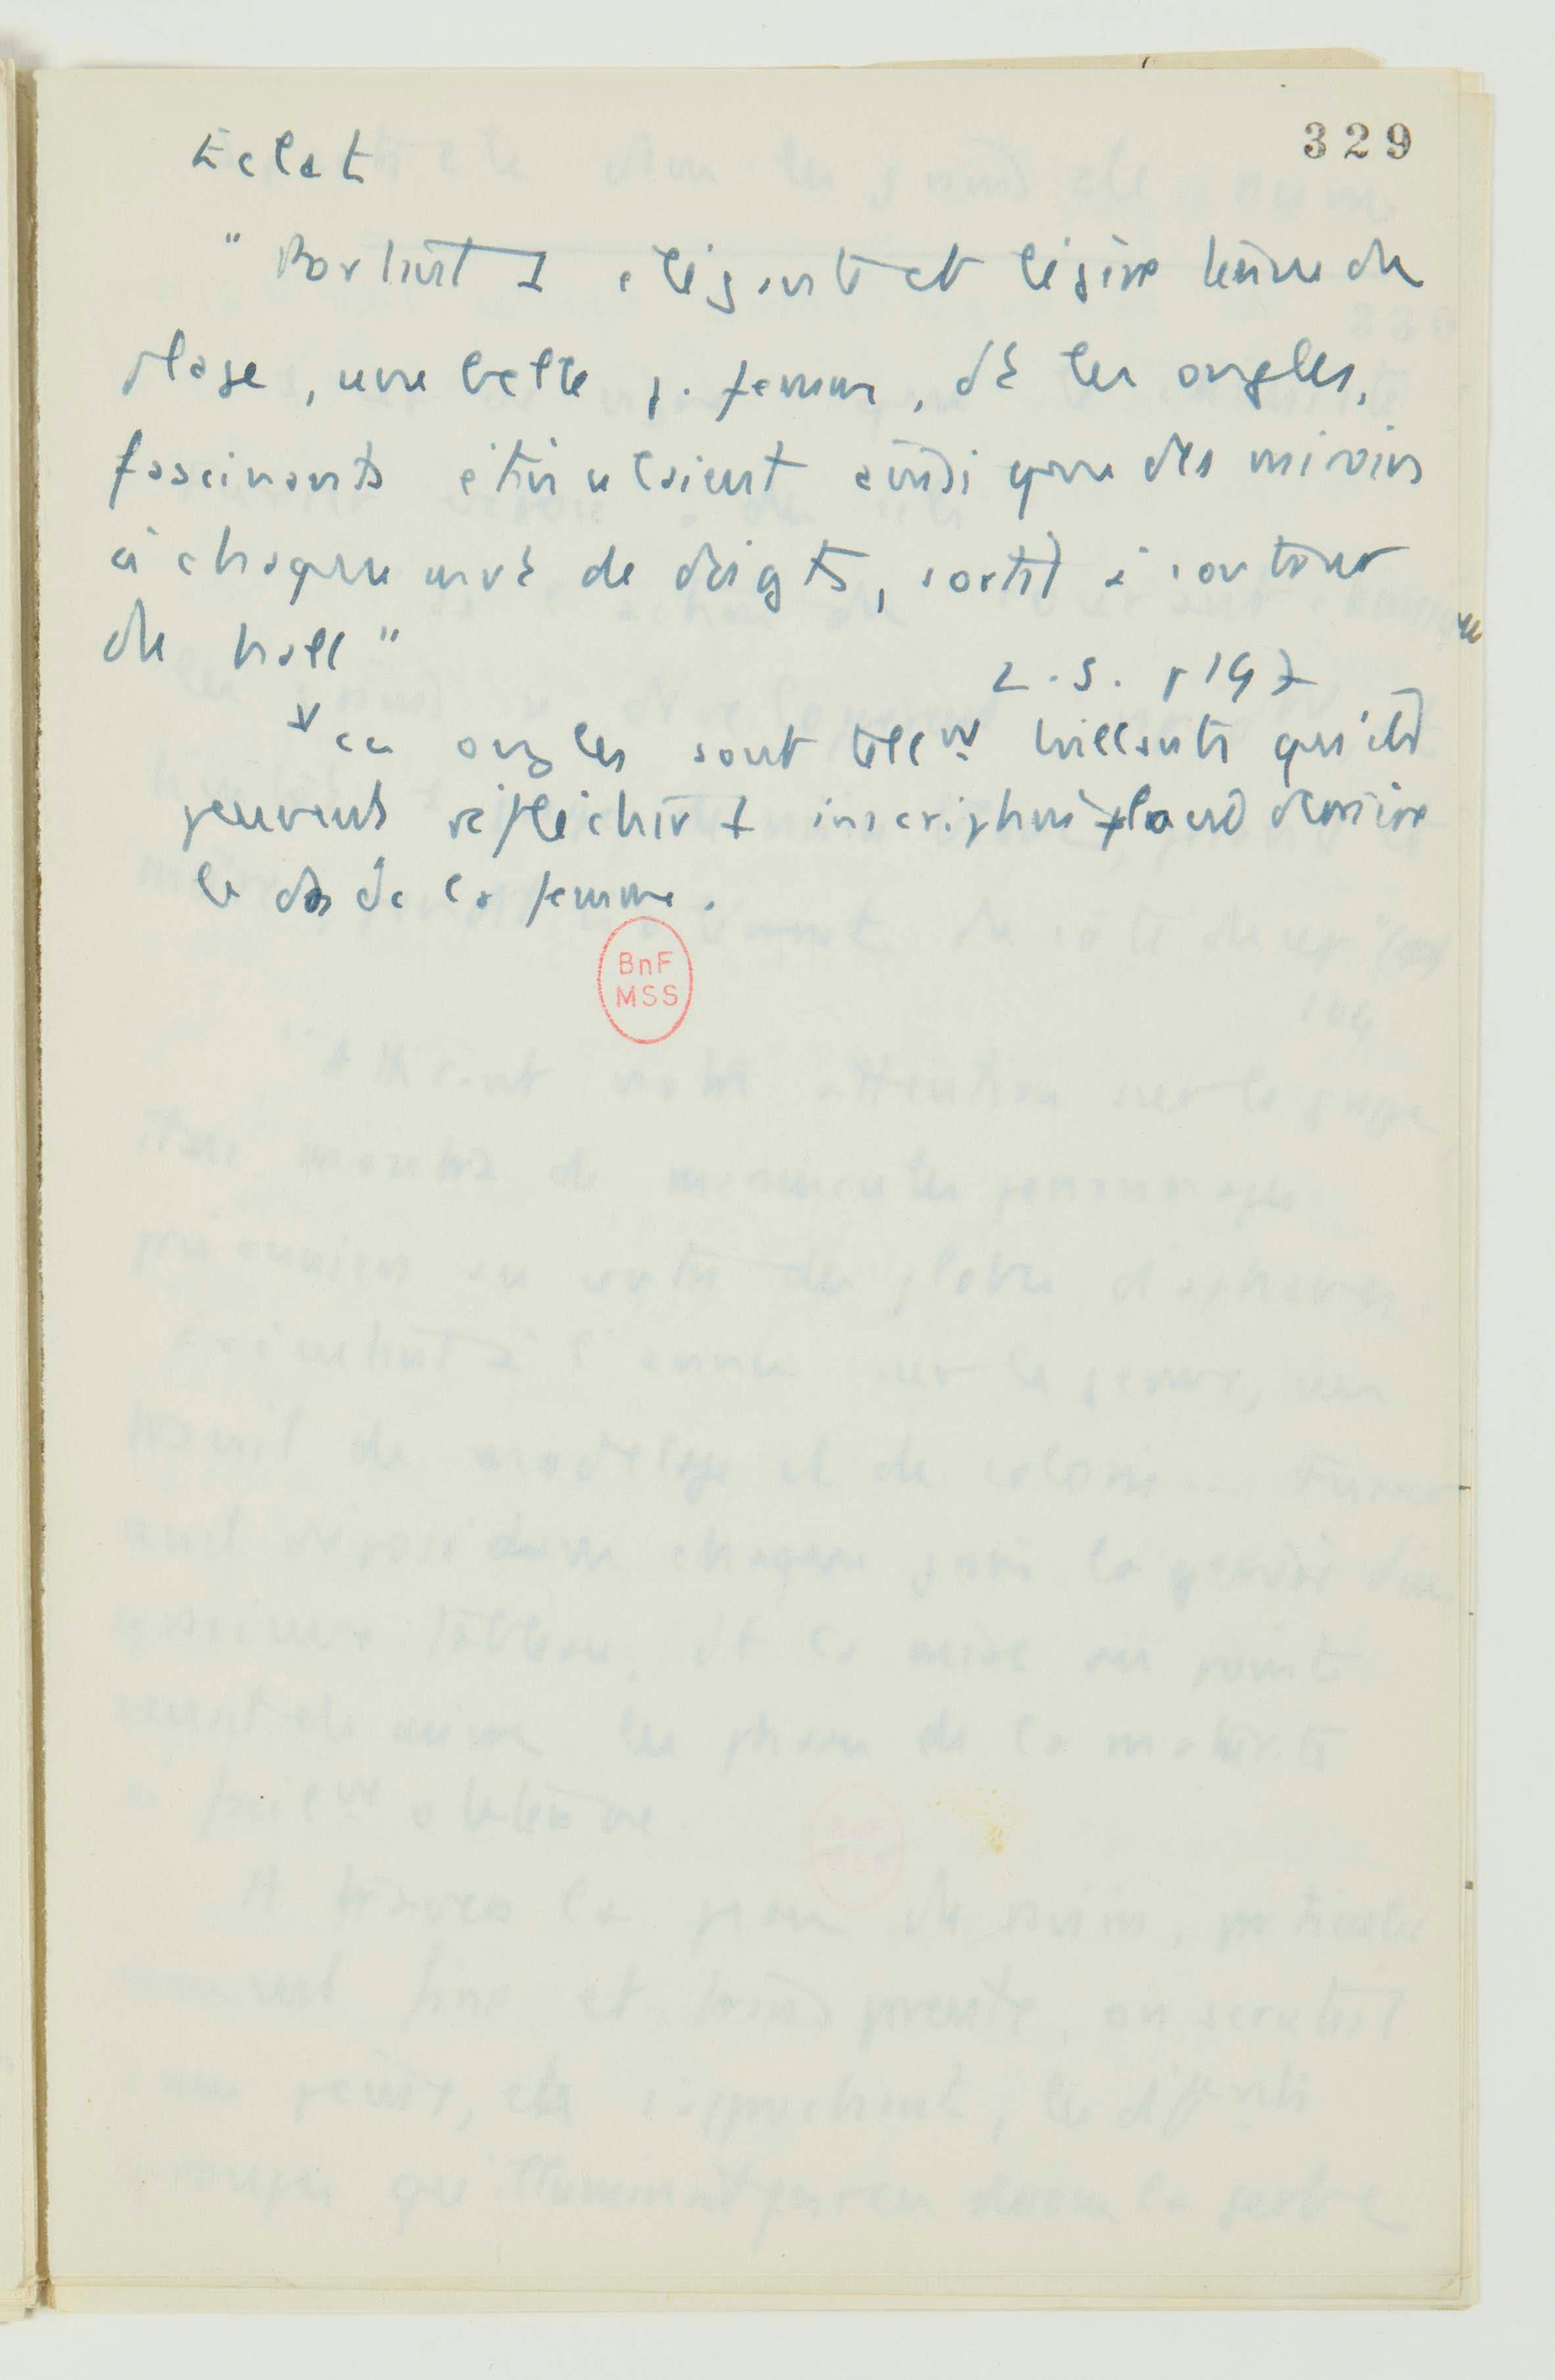 329
Eclat
" Portant 1 élégante et légère tenue de
plage, une belle j. femme, dt les ongles,
fascinants étincelaient ainsi que des miroirs
à chaque mvt de doigts, sortit à son tour
du hall "
L.S. p 147
ces ongles sont tellnt brillants qu'ils
peuvent réfléchir 1 inscription placée derrière
le dos de la femme.
BnF
MSS